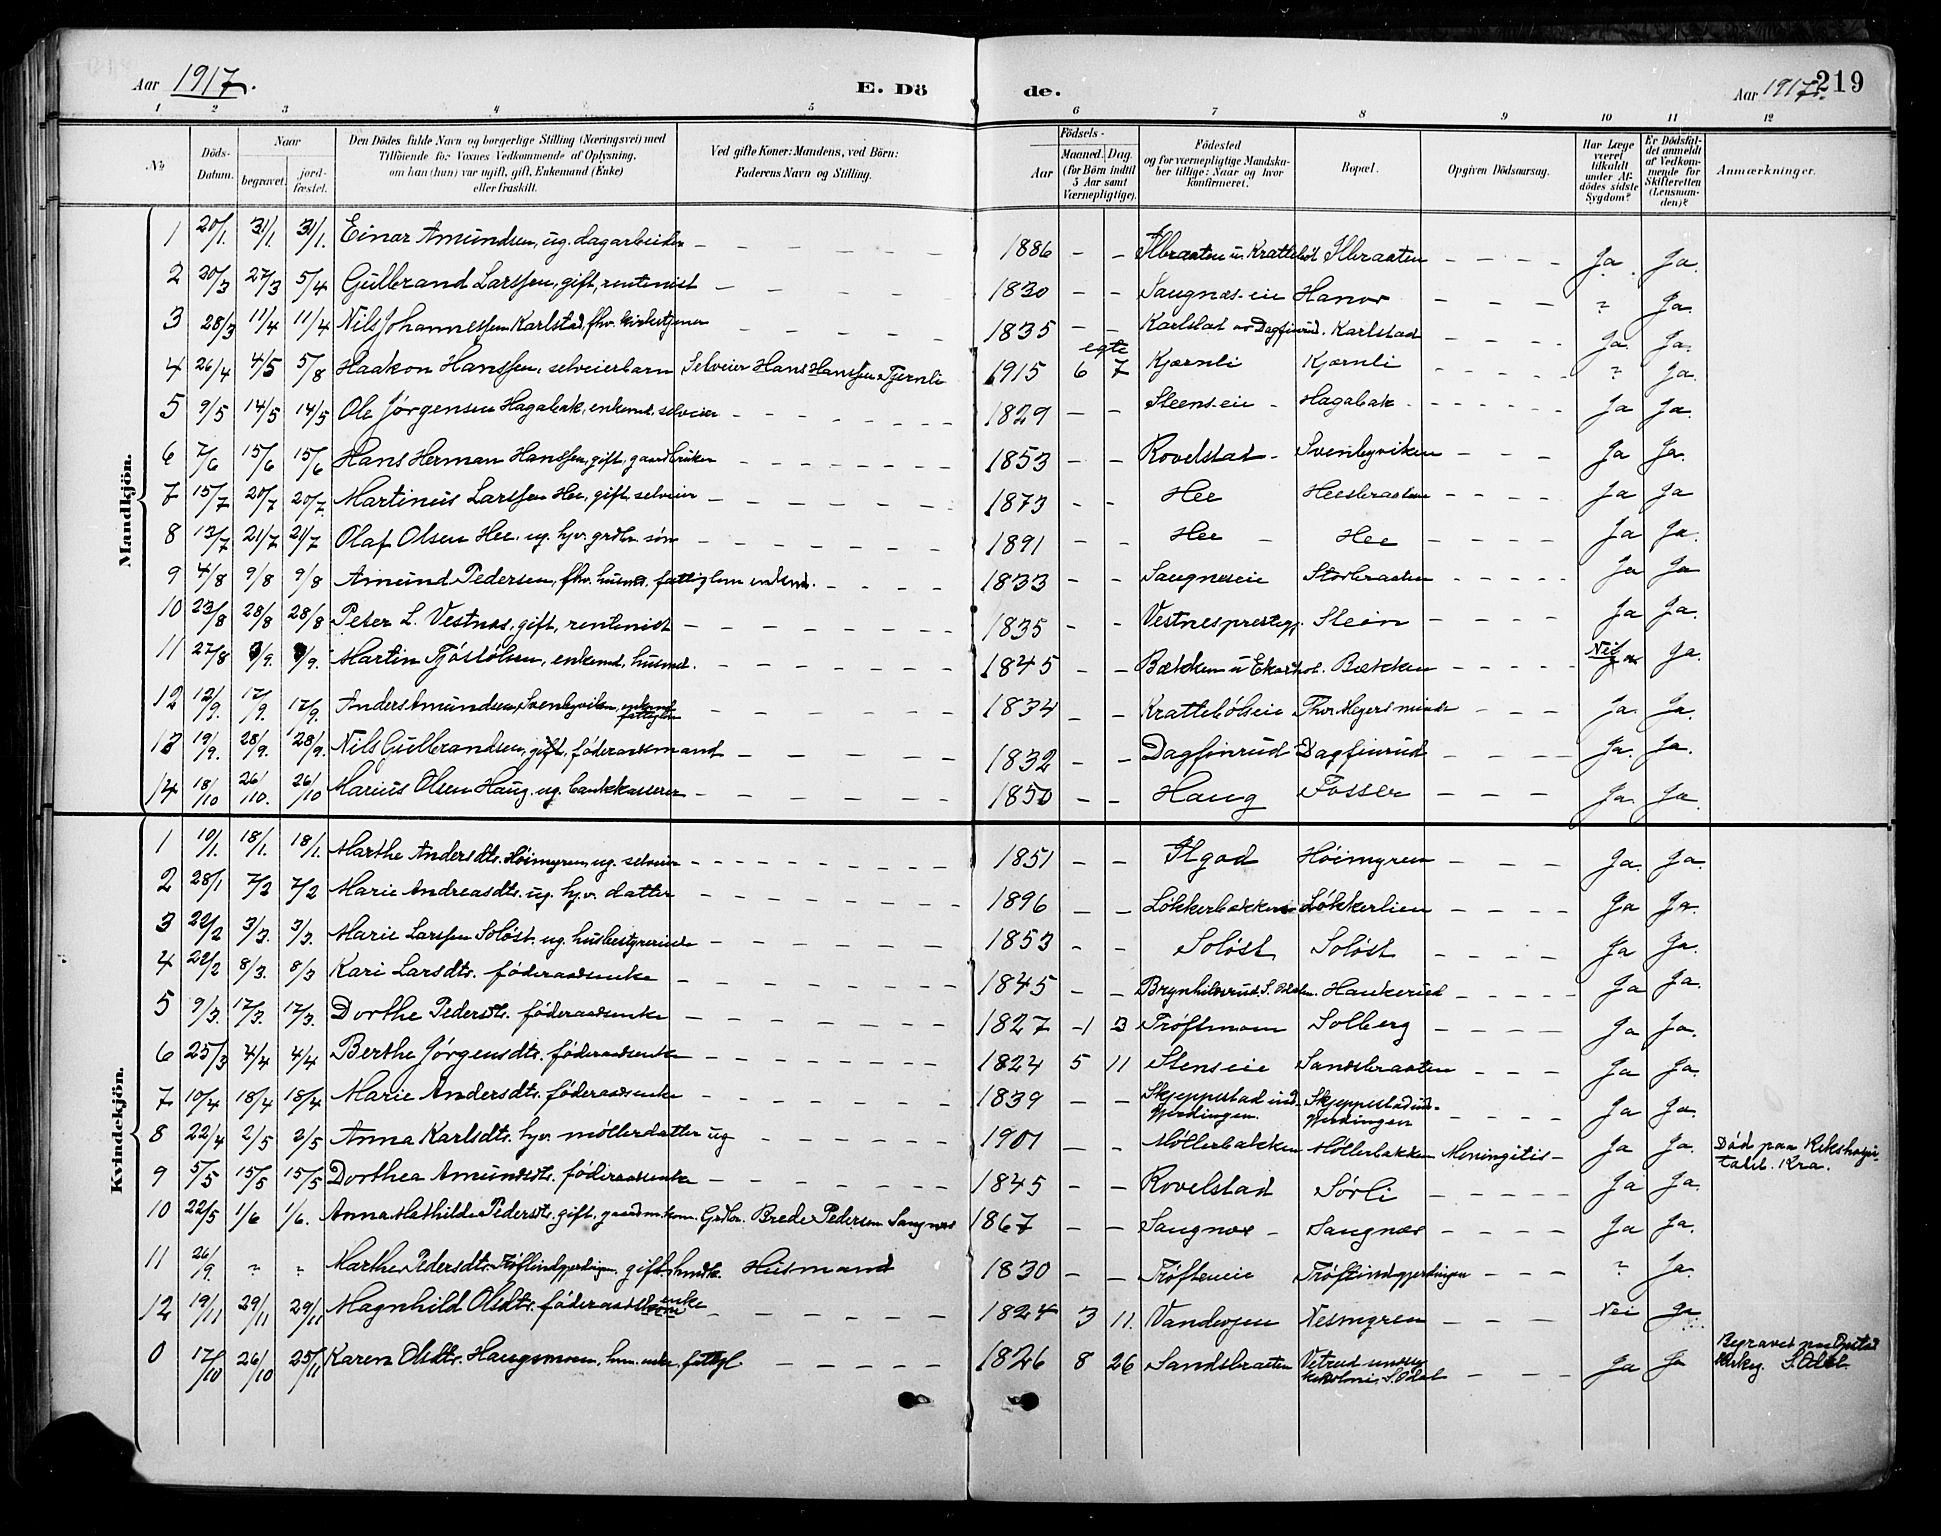 Aar 1917. E. Dö de. Aar 1917. 219
1 2 3 4 5 6 7 8 9 10 11 12
No. Döds-Datum. Naar begravet. jordfæstet. Den Dödes fulde Navn og borgerlige Stilling (Næringsvei) med Tilföiende for Voxnes Vedkommende af Oplysning, om han (hun) var ugift, gift, Enkemand (Enke) eller fraskilt. Ved gifte Koner: Mandens, ved Börn: Faderens Navn og Stilling. Födsels- Aar Maaned. Dag. (for Börn indtil 5 Aar samt Værnepligtige). Födested og for værnepligtige Mandskaber tillige: Naar og hvor konfirmeret. Bopæl. Opgiven Dödsaarsag. Har Læge været tilkaldt under Afdödes sidste Sygdom? Er Dödsfaldet anmeldt af Vedkommende for Skifteretten (Lensmanden)? Anmærkninger.
Mandkjön.
1 20/1. 31/1. 31/1. Einar Amundsen, ug. dagarbeider – – – – 1886 – – Ilbraaten u. Kratteböl Ilbraaten – – – – Ja. Ja.
2 20/3 27/3 5/4 Gulbrand Larssen, gift, rentenist – – – – 1830 – – Saugnæs-eie Hanor – – – – " Ja.
3 28/3 11/4 11/4 Nils Johannessen Karlstad, fhv. kirketjener – – – – 1835 – – Karlstad Dagfinrud. Karlstad – – – – Ja. Ja.
4 26/4 4/5 5/8 Haakon Hanssen, selveierbarn Selveier Hans Hanssen Tjernli egte 1915 6 7 Kjærnli Kjærnli – – – – " Ja.
5 9/5 14/5 14/5 Ole Jørgensen Hagabak, enkemd. selveier – – – – 1829 – – Steens-eie – Hagabak – – – – Ja Ja.
6 7/6 15/6 15/6 Hans Herman Hanssen, gift, gaardbruker – – – – 1853 – – Rovelstad – Svenbyviken – – – – Ja Ja.
7 15/7 20/7 20/7 Martinus Larssen Hee, gift, selveier – – – – 1873 – – Hee Heesbraaten – – – – Ja Ja
8 13/7 21/7 21/7 Olaf Olsen Hee, ug. hjv. grdbr. søn – – – – 1891 – – Hee – Hee – – – – Ja Ja.
9 4/8 9/8 9/8 Amund Pedersen, fhv. husm. fattiglem enkemd. – – – – 1833 – – Saugnæseie Storbraaten – – – – Ja Ja
10 23/8 28/8 28/8 Peter L. Vestnæs, gift, rentenist – – – – 1835 – – Vestnes prestegj. Stein – – – – Ja Ja.
11 27/8 /9. /9. Martin Tjøstølsen, enkemd, husmd. – – – – 1845 – – Bækken u Bækken – – – – Nei Ja.
12 12/9. 17/9. 17/9. Anders Amundsen, Svenbyviken, enkemd. fattiglem – – – – 1834 – – Krattebölseie Thor Meyers minde – Ja. Ja.
13 19/9. 28/9. 28/9. Nils Gulbrandsen, gift, föderaadsmand – – – – 1832 – – Dagfinrud Dagfinrud – – – – Ja. Ja.
14 18/10 26/10. 26/10 Marius Olsen Haug, ug. bankkasserer – – – – 1850 – – Haug Fosser – – – Ja. Ja.
Kvindekjön.
1 10/1. 18/1. 18/1. Marthe Andersdtr. Höimyren, ug. selveier – – – – 1851 – – Ilgad Höimyren – – – Ja. Ja.
2 28/1 7/2 7/2 Marie Andreasdtr. ug. hjv. datter – – – – 1896 – – Løkkerbakken Løkkerlien – – – – Ja Ja.
3 22/2 3/3. 3/3. Marie Larssen Soløst, ug. husbestyrerinde – – – – 1853 – – Soløst Soløst – – – – Ja Ja.
4 22/2 8/3. 8/3 Kari Larsdtr. föderaadsenke – – – – 1845 – – Brynhildsrud. S. Odalen. Haukerud – – – – Ja Ja.
5 9/3. 17/3. 17/3. Dorthe Pedersdtr. föderaadsenke – – – – 1827 –1 3 Trøftmoen Solberg – – – – Ja Ja.
6 25/3 4/4 4/4 Berthe Jørgensdtr. föderaadsenke – – – – 1824 5 11 Stenseie Sandsbraaten – – – Ja Ja.
7 10/4 18/4 18/4 Marie Andersdtr. föderaadsenke – – – – 1839 – – Skjeppestad ind-gjerdingen. Skjeppestad ind-gjerdingen – – – – Ja Ja.
8 22/4 2/5 2/5 Anna Karlsdtr. hjv. møllerdatter ug – – – – 1901 – – Møllerbakken Møllerbakken Meningitis – Ja Ja. Död paa Rikshospitalet. Kra.
9 5/5 15/5 15/5 Dorthea Amundsdtr. föderaadsenke – – – – 1845 – – Rovelstad Sørli – – – – Ja Ja.
10 22/5 1/6 1/6. Anna Mathilde Pedersdtr. gift. gaardm. kone. Grdbr. Brede Pedersen Saugnæs 1867 – – Saugnæs – Saugnæs – – – – Ja Ja.
11 26/9. " " Marthe Pedersdtr. Trøftindgjerdingen, gift Husmand 1830 – – Trøfteeie Trøftindgjerdingen – – – " Ja.
12 19/11 29/11 29/11 Magnhild Olsdtr. föderaadsenke – – – – 1824 3 11. Vandsjøen Nesmyren – – – Nei Ja
0 17/10 26/10 25/11 Karen Olsdtr. Haugsmoen, hm. enke, fattigl. – – – – 1826 8 26 Sandsbraaten Vetrud under S. Odal – – – Ja Ja Begravet paa Opstad Kirkeg. S. Odal.